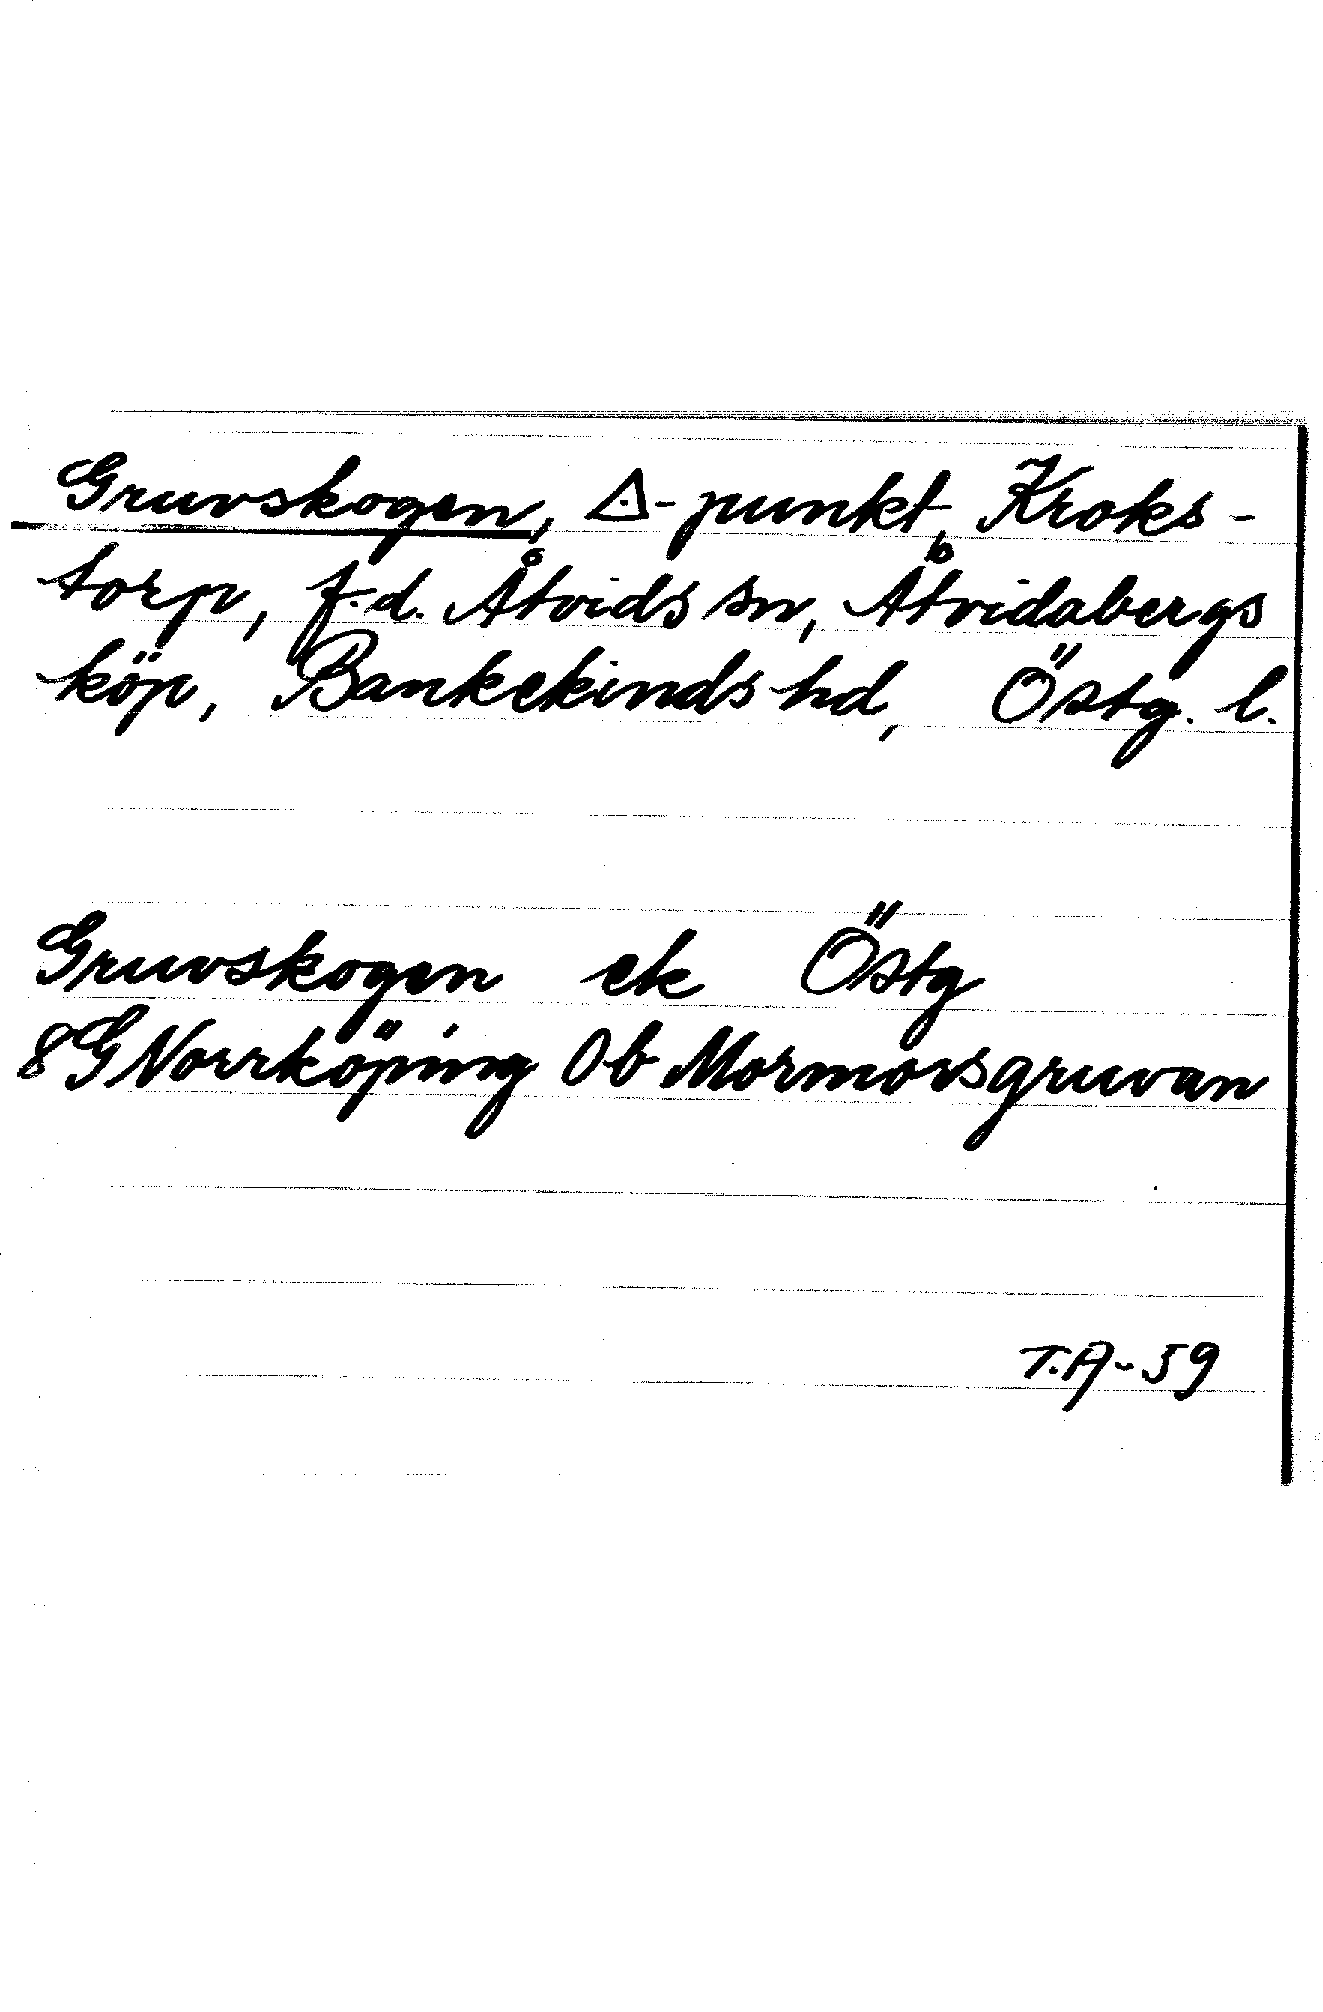 Gruvskogen, △-punkt, Kroks-
torp, f.d. Åtvids sn, Åtvidabergs
köp, Bankekinds hd, Östg. l.
Gruvskogen ek Östg
8G Norrköping 0b Mormorsgruvan
T.A-59